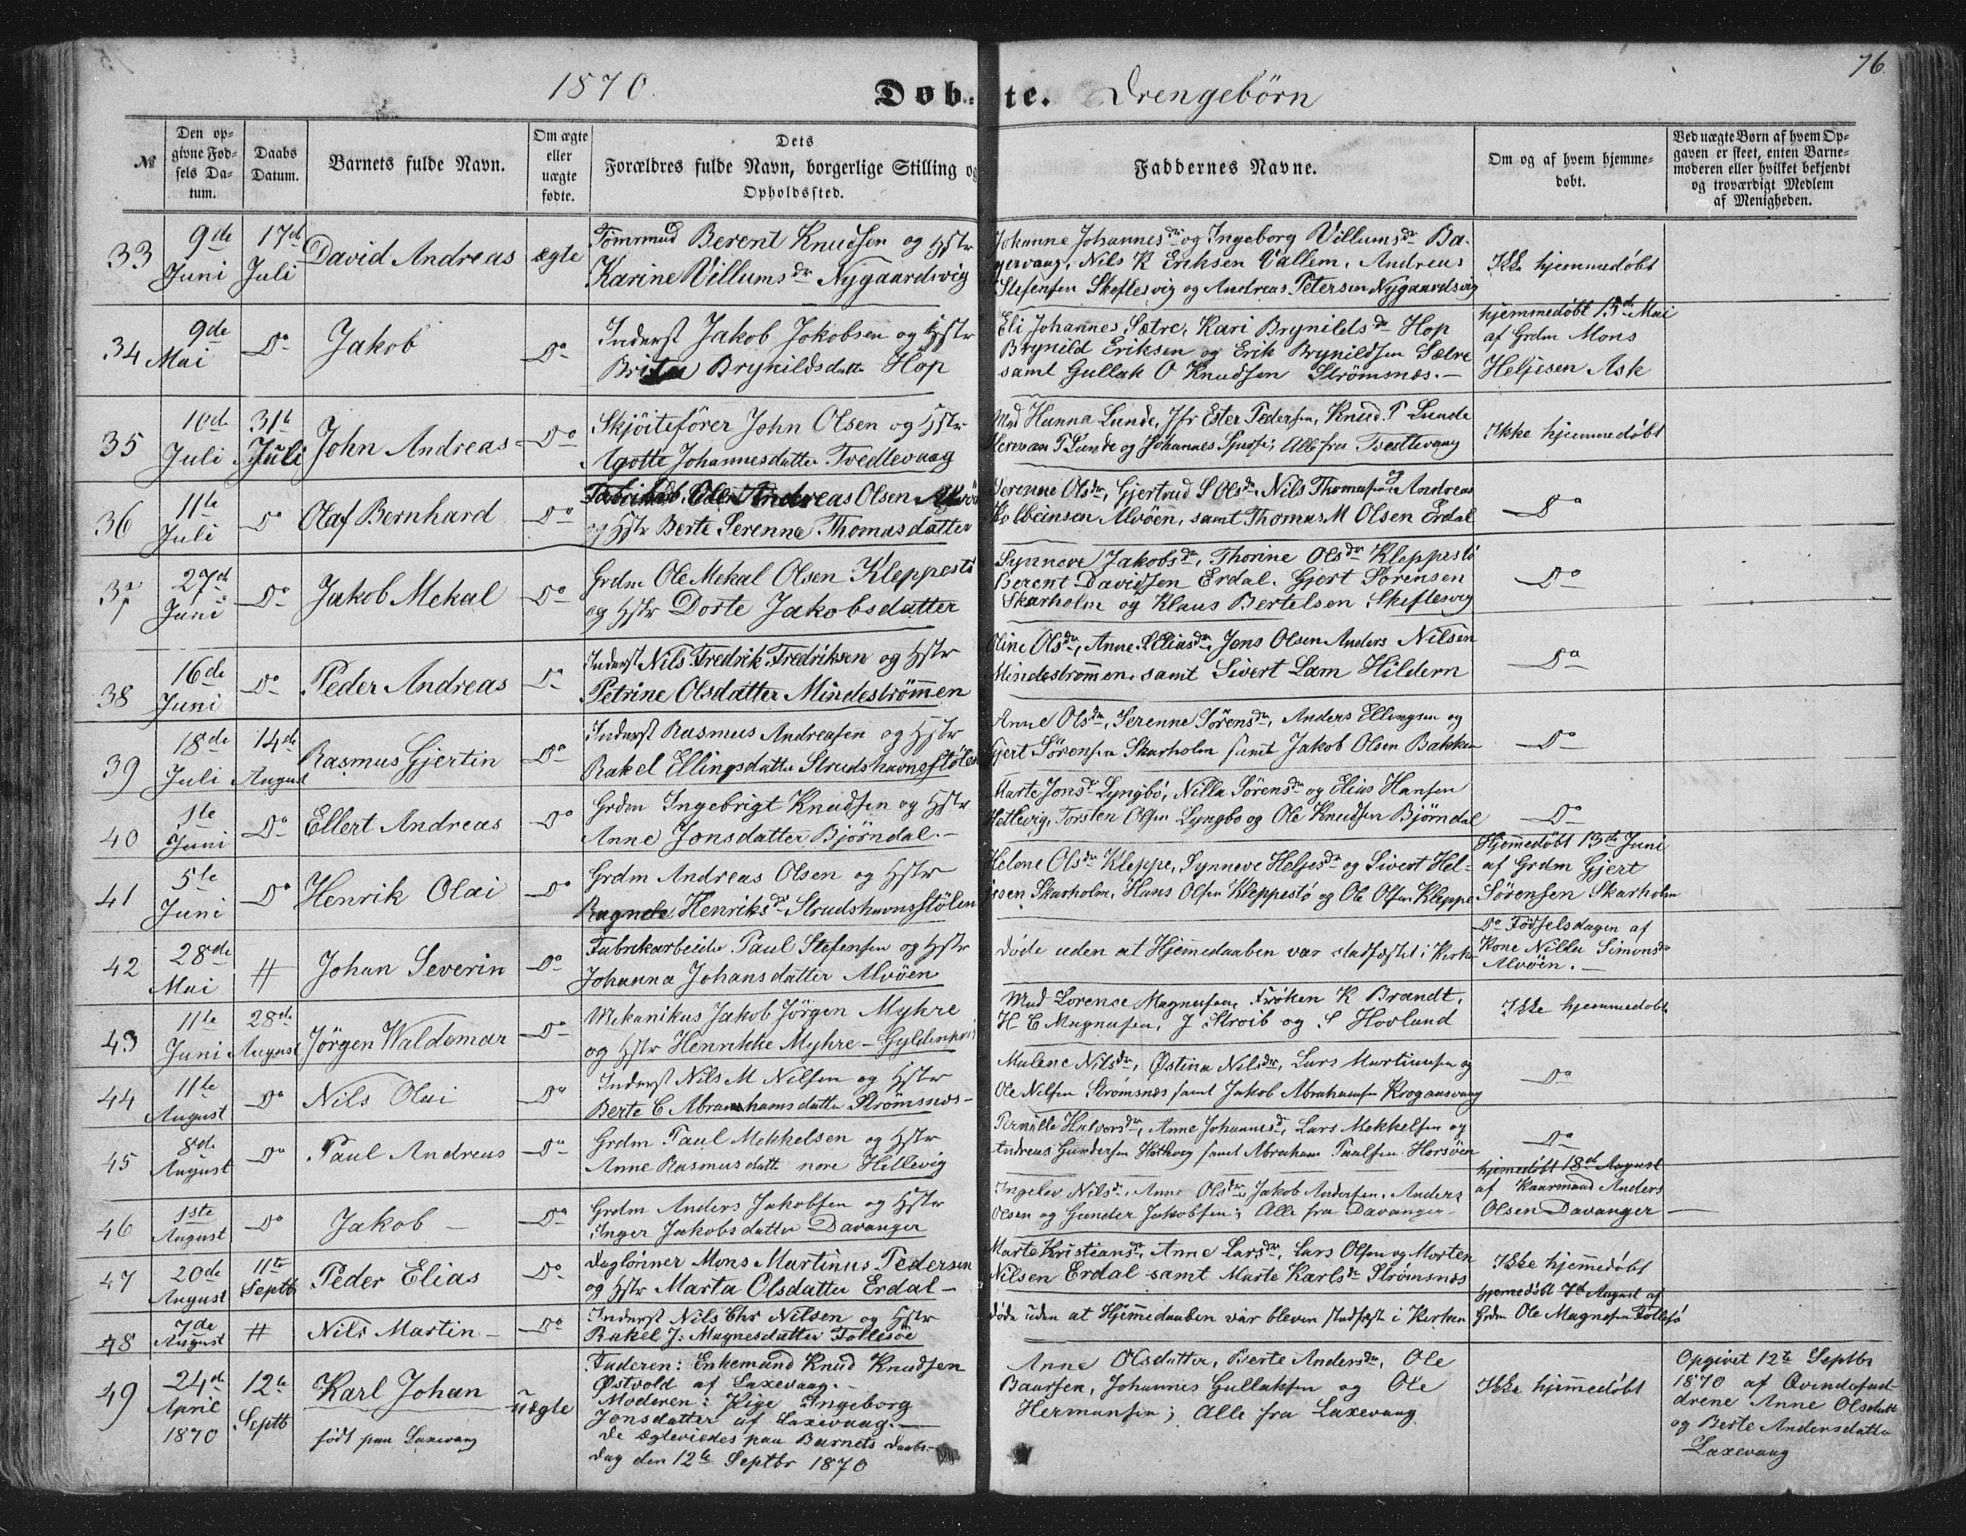 1870.
Døb-te. Drengebørn
76.
№
Den op-
givne Fød-
sels Da-
tum.
Daabs
Datum.
Barnets fulde Navn.
Om ægte
eller
uægte
fødte.
Dets
Forældres fulde Navn, borgerlige Stilling og
Opholdssted.
Faddernes Navne.
Om og af hvem hjemme-
døbt.
Ved uægte Børn af hvem Op-
gaven er skeet, enten Barne-
moderen eller hvilket bekjendt
og troværdigt Medlem
af Menigheden.
33
9de
Juni
17de
Juli
David Andreas
ægte
Tømrmd Berent Knudsen og Hstr
Karine Villumsdr Nygaardsvig
Johanne Johannesdr og Ingeborg Villumsdr
Nils K Eriksen Vallem, Andreas
Stefensen Skeflesvig og Andreas Petersen Nygaardsvig
Ikke hjemmedøbt
34
9de
Mai
Do
Jakob
Do
Inderst Jakob Jokobsen og Hstr
Brita Brynildsdatte Hop
Eli Johannes Sætre, Kari Brynildsdr Hop
Brynild Eriksen og Erik Brynildsen Sætre
samt Gullak O Knudsen Strømsnæs.-
hjemmedøbt 15de Mai
af Grdm Mons
Heljesen Ask
35
10de
Juli
31te
Juli
John Andreas
Do
Skjöitefører John Olsen og Hstr
Agotte Johannesdatter Tvedtevaag
Mad Hanna Lunde, Jfr Ester Pedersen, Knud P Lunde
Herman P Lunde og Johannes Alle fra Tvedtevaag
Ikke hjemmedøbt
36
11te
Juli
Do
Olaf Bernhard
Do
Andreas Olsen Alvöe
og Hstr Berte Serenna Thomasdatter
Serenne Olsdr, Gjertrud S Olsdr, Nils Thomasen, Andreas
Kolbeinsen Alvöen, samt Thomas M Olsen Erdal
Do
37
27de
Juni
Do
Jakob Mekal
Do
Grdm Ole Mekal Olsen Kleppestö
og Hstr Dorte Jakobsdatter
Synneve Jakobsdr, Thorine Olsdr Kleppestö
Berent Davidsen Erdal, Gjert Sørensen
Skarholm og Klaus Bertelsen Skeflesvig
Do
38
16de
Juni
Do
Peder Andreas
Do
Inderst Nils Fredrik Fredriksen og Hstr
Petrine Olsdatter Mindestrømmen
Oline Olsdr, Anne Eliasdr, Jens Olsen Anders Nilsen
Mindestrømmen, samt Sivert Lam Hildern
Do
39
18de
Juli
14de
August
Rasmus Gjertin
Do
Inderst Rasmus Andreasen og Hstr
Rakel Ellingsdatter Strudshavnsstølen
Anne Olsdr, Serenne Sørensdr, Anders Ellingsen og
Gjert Sørensen Skarholm samt Jakob Olsen Bakken
Do
40
1te
Juni
Do
Ellert Andreas
Do
Grdm Ingebrigt Knudsen og Hstr
Anne Jonsdatter Bjørndal.-
Marte Jonsdr Lyngbö, Nilla Sørensdr og Elias Hansen
Hetlevig, Torsten Olsen Lyngbø og Ole Knudsen Bjørndal
Do
41
5te
Juni
Do
Henrik Olai
Do
Grdm Andreas Olsen og Hstr
Ragnele Henriksdr Strudshavnsstølen
Helene Olsdr Kleppe, Synneve Heljesdr og Sivert Hel-
jesen Skarholm, Hans Olsen Kleppestø og Ole Olsen Kleppe
Hjemedøbt 13de Juni
af Grdm Gjert
Sørensen Skarholm
42
28de
Mai
#
Johan Severin
Do
Fabrikarbeider Paul Stefensen og Hstr
Johanna Johansdatter Alvöen
Døde uden at Hjemedaaben var stadfæstet i Kirke
Do Fødselsdagen af
Kone Nilla Simonsdr
Alvöen.-
43
11te
Juni
28de
August
Jørgen Waldemar
Do
Mekanikus Jakob Jørgen Myhre
og Hstr Henrikke Myhre - Gyldenpris
Mad Lorense Magnusen, Frøken K Brandt,
H C Magnusen, J Stroib og S Hovland
Ikke hjemmedøbt
44
11te
August
Do
Nils Olai
Do
Inderst Nils M Nilsen og Hstr
Berte C Abrahamsdatter Strömsnes-
Malene Nilsdr, Østina Nilsdr, Lars Martinusen og
Ole Nilsen Strømsnæs samt Jakob Abrahamsen Krogaasvaag
Do
45
8de
August
Do
Paul Andreas
Do
Grdm Paul Mekkelsen og Hstr
Anne Rasmusdatt nore Hetlevig
Pernille Halvorsdr, Anne Johannesd, Lars Mekkelsen og
Andreas Gundersen Hetlevig samt Abraham Paulsen Horsøen
Do
46
1ste
August
Do
Jakob -
Do
Grdm Anders Jakobsen og Hstr
Inger Jakobsdatter Davanger
Ingelev Nilsd, Anne Olsdr, Jakob Andersen, Anders
Olsen og Gunder Jakobsen; Alle fra Davanger
hjemedøbt 18de August
af Kaarmand Anders
Olsen Davanger
47
20de
August
11te
Septb
Peder Elias
Do
Daglønner Mons Martinus Pedersen
og Hstr Marta Olsdatter Erdal-
Marte Kristiansdr, Anne Larsdr, Lars Olsen og Morten
Nilsen Erdal samt Marte Karlsdr Strømsnæs
Ikke hjemedøbt
48
7de
August
#
Nils Martin-
Do
Inderst Nils Chr Nilsen og Hstr
Rakel J. Magnesdatter Follesöe
døde uden at Hjemedaaben var bleven stadfæst i Kirken
hjemedøbt 7de August af
Grdm Ole Magnesen Follesö
49
24de
April
1870
12te
Septb
Karl Johan
født paa Laxevaag
uægte
Faderen: Enkemand Knud Knudsen
Østvold af Laxevaag.-
Moderen: Pige Ingeborg
Jonsdatter af Laxevaag.-
De ægteviedes paa Barnets daabs-
dag den 12te Septbr 1870
Anne Olsdatter, Berte Andersdr, Ole
Baarsen, Johannes Gullaksen og Ole
Hermansen; Alle fra Laxevaag
Ikke hjemedøbt
Opgivet 12te Septbr
1870 af Qvindefad-
drene Anne Olsdatt
og Berte Andersdatte
Laxevaag